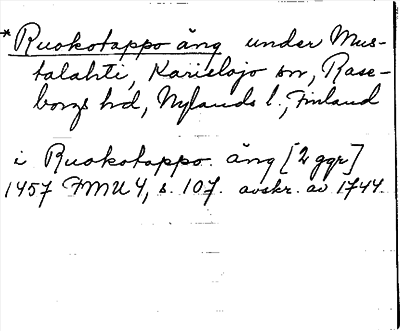 *Ruokotappo äng under Mus-
talahti, Karislojo sn, Rase-
borgs hd, Nylands l., Finland
i Ruokotappo. äng [2 ggr]
1457 FMU 4, s. 107. avskr. av 1744.